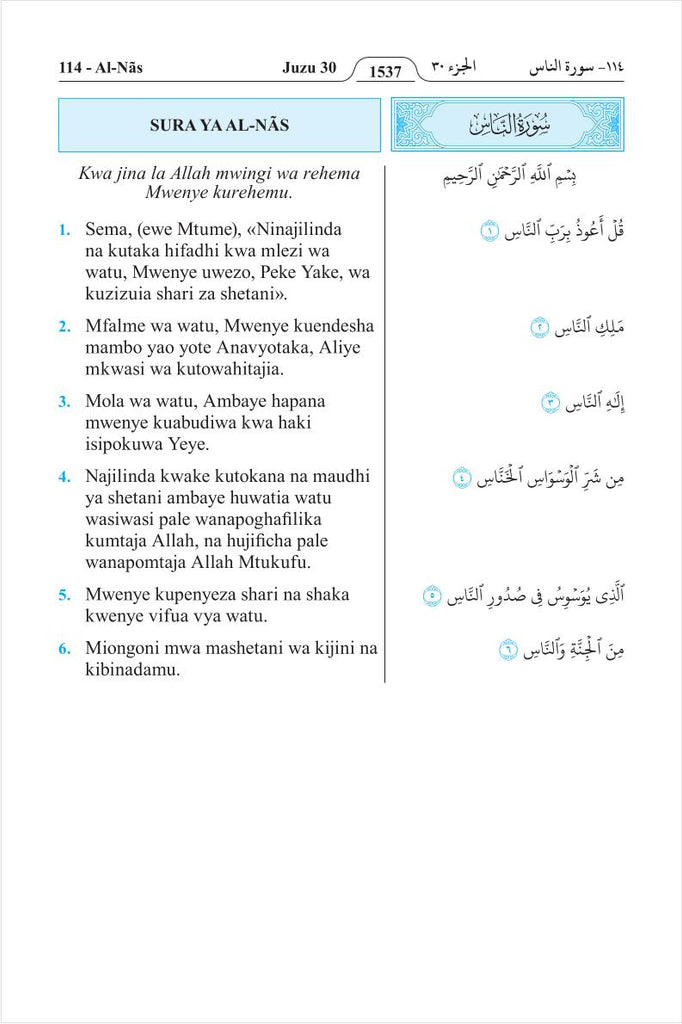 114 - Al-Nãs Juzu 30 1537 الجزء ٣٠ ١١٤- سورة الناس
SURA YA AL-NÃS
سُورَةُ النَّاسِ
Kwa jina la Allah mwingi wa rehema
Mwenye kurehemu.
بِسْمِ ٱللَّهِ ٱلرَّحْمَٰنِ ٱلرَّحِيمِ
1. Sema, (ewe Mtume), «Ninajilinda
na kutaka hifadhi kwa mlezi wa
watu, Mwenye uwezo, Peke Yake, wa
kuzizuia shari za shetani».
قُلْ أَعُوذُ بِرَبِّ ٱلنَّاسِ ١
2. Mfalme wa watu, Mwenye kuendesha
mambo yao yote Anavyotaka, Aliye
mkwasi wa kutowahitajia.
مَلِكِ ٱلنَّاسِ ٢
3. Mola wa watu, Ambaye hapana
mwenye kuabudiwa kwa haki
isipokuwa Yeye.
إِلَٰهِ ٱلنَّاسِ ٣
4. Najilinda kwake kutokana na maudhi
ya shetani ambaye huwatia watu
wasiwasi pale wanapoghafilika
kumtaja Allah, na hujificha pale
wanapomtaja Allah Mtukufu.
مِن شَرِّ ٱلْوَسْوَاسِ ٱلْخَنَّاسِ ٤
5. Mwenye kupenyeza shari na shaka
kwenye vifua vya watu.
ٱلَّذِى يُوَسْوِسُ فِى صُدُورِ ٱلنَّاسِ ٥
6. Miongoni mwa mashetani wa kijini na
kibinadamu.
مِنَ ٱلْجِنَّةِ وَٱلنَّاسِ ٦